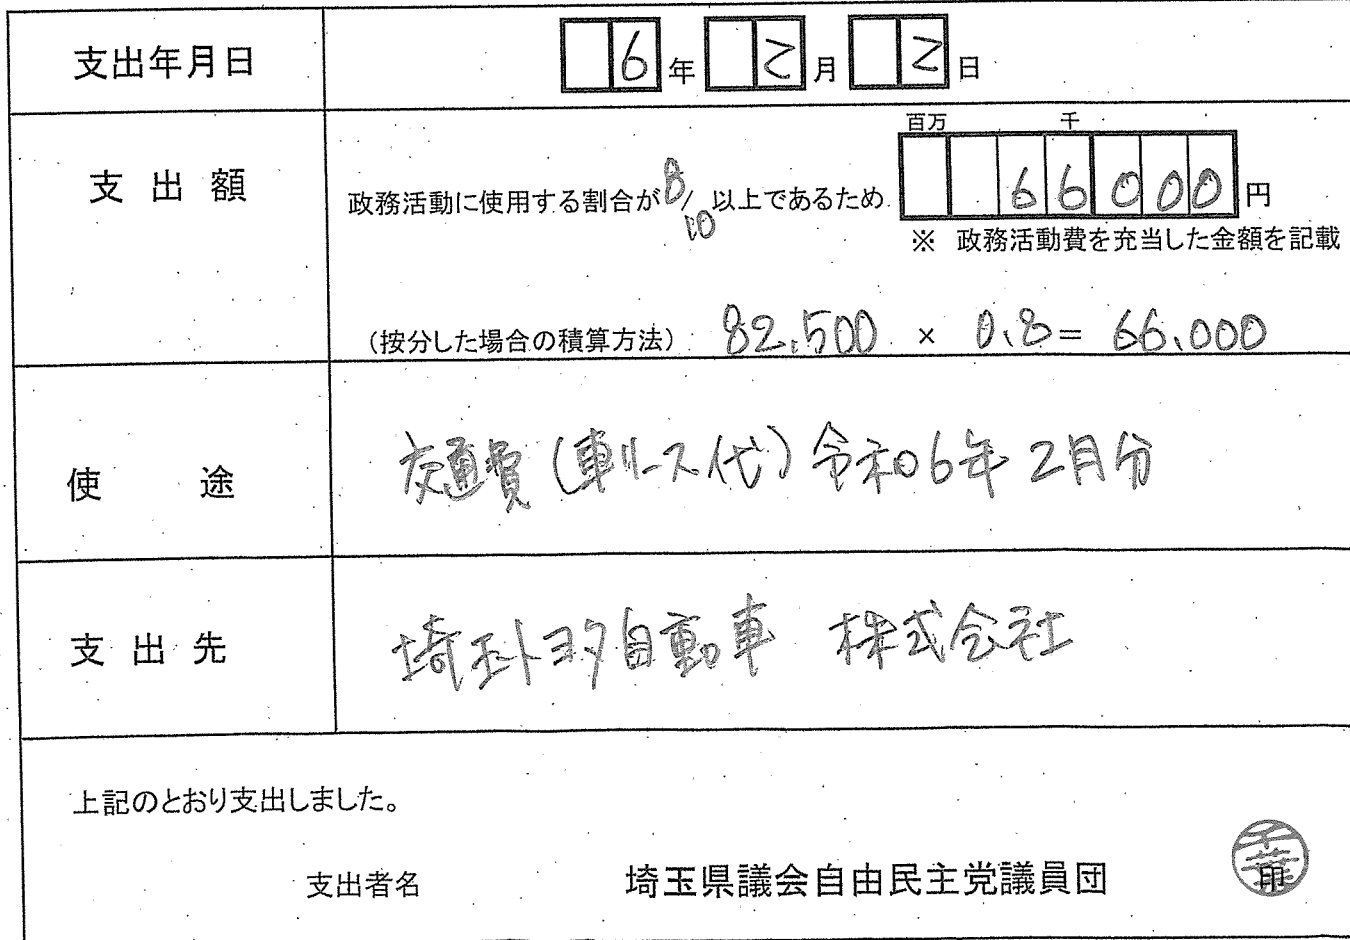 支出年月日 6年 2月 2日
百万 千
支出額 政務活動に使用する割合が8/10以上であるため 66000円
※ 政務活動費を充当した金額を記載
(按分した場合の積算方法) 82,500 × 0.8= 66,000
使途 交通費(車リース代)令和06年2月分
支出先 埼玉トヨタ自動車 株式会社
上記のとおり支出しました。
支出者名 埼玉県議会自由民主党議員団 印
千葉